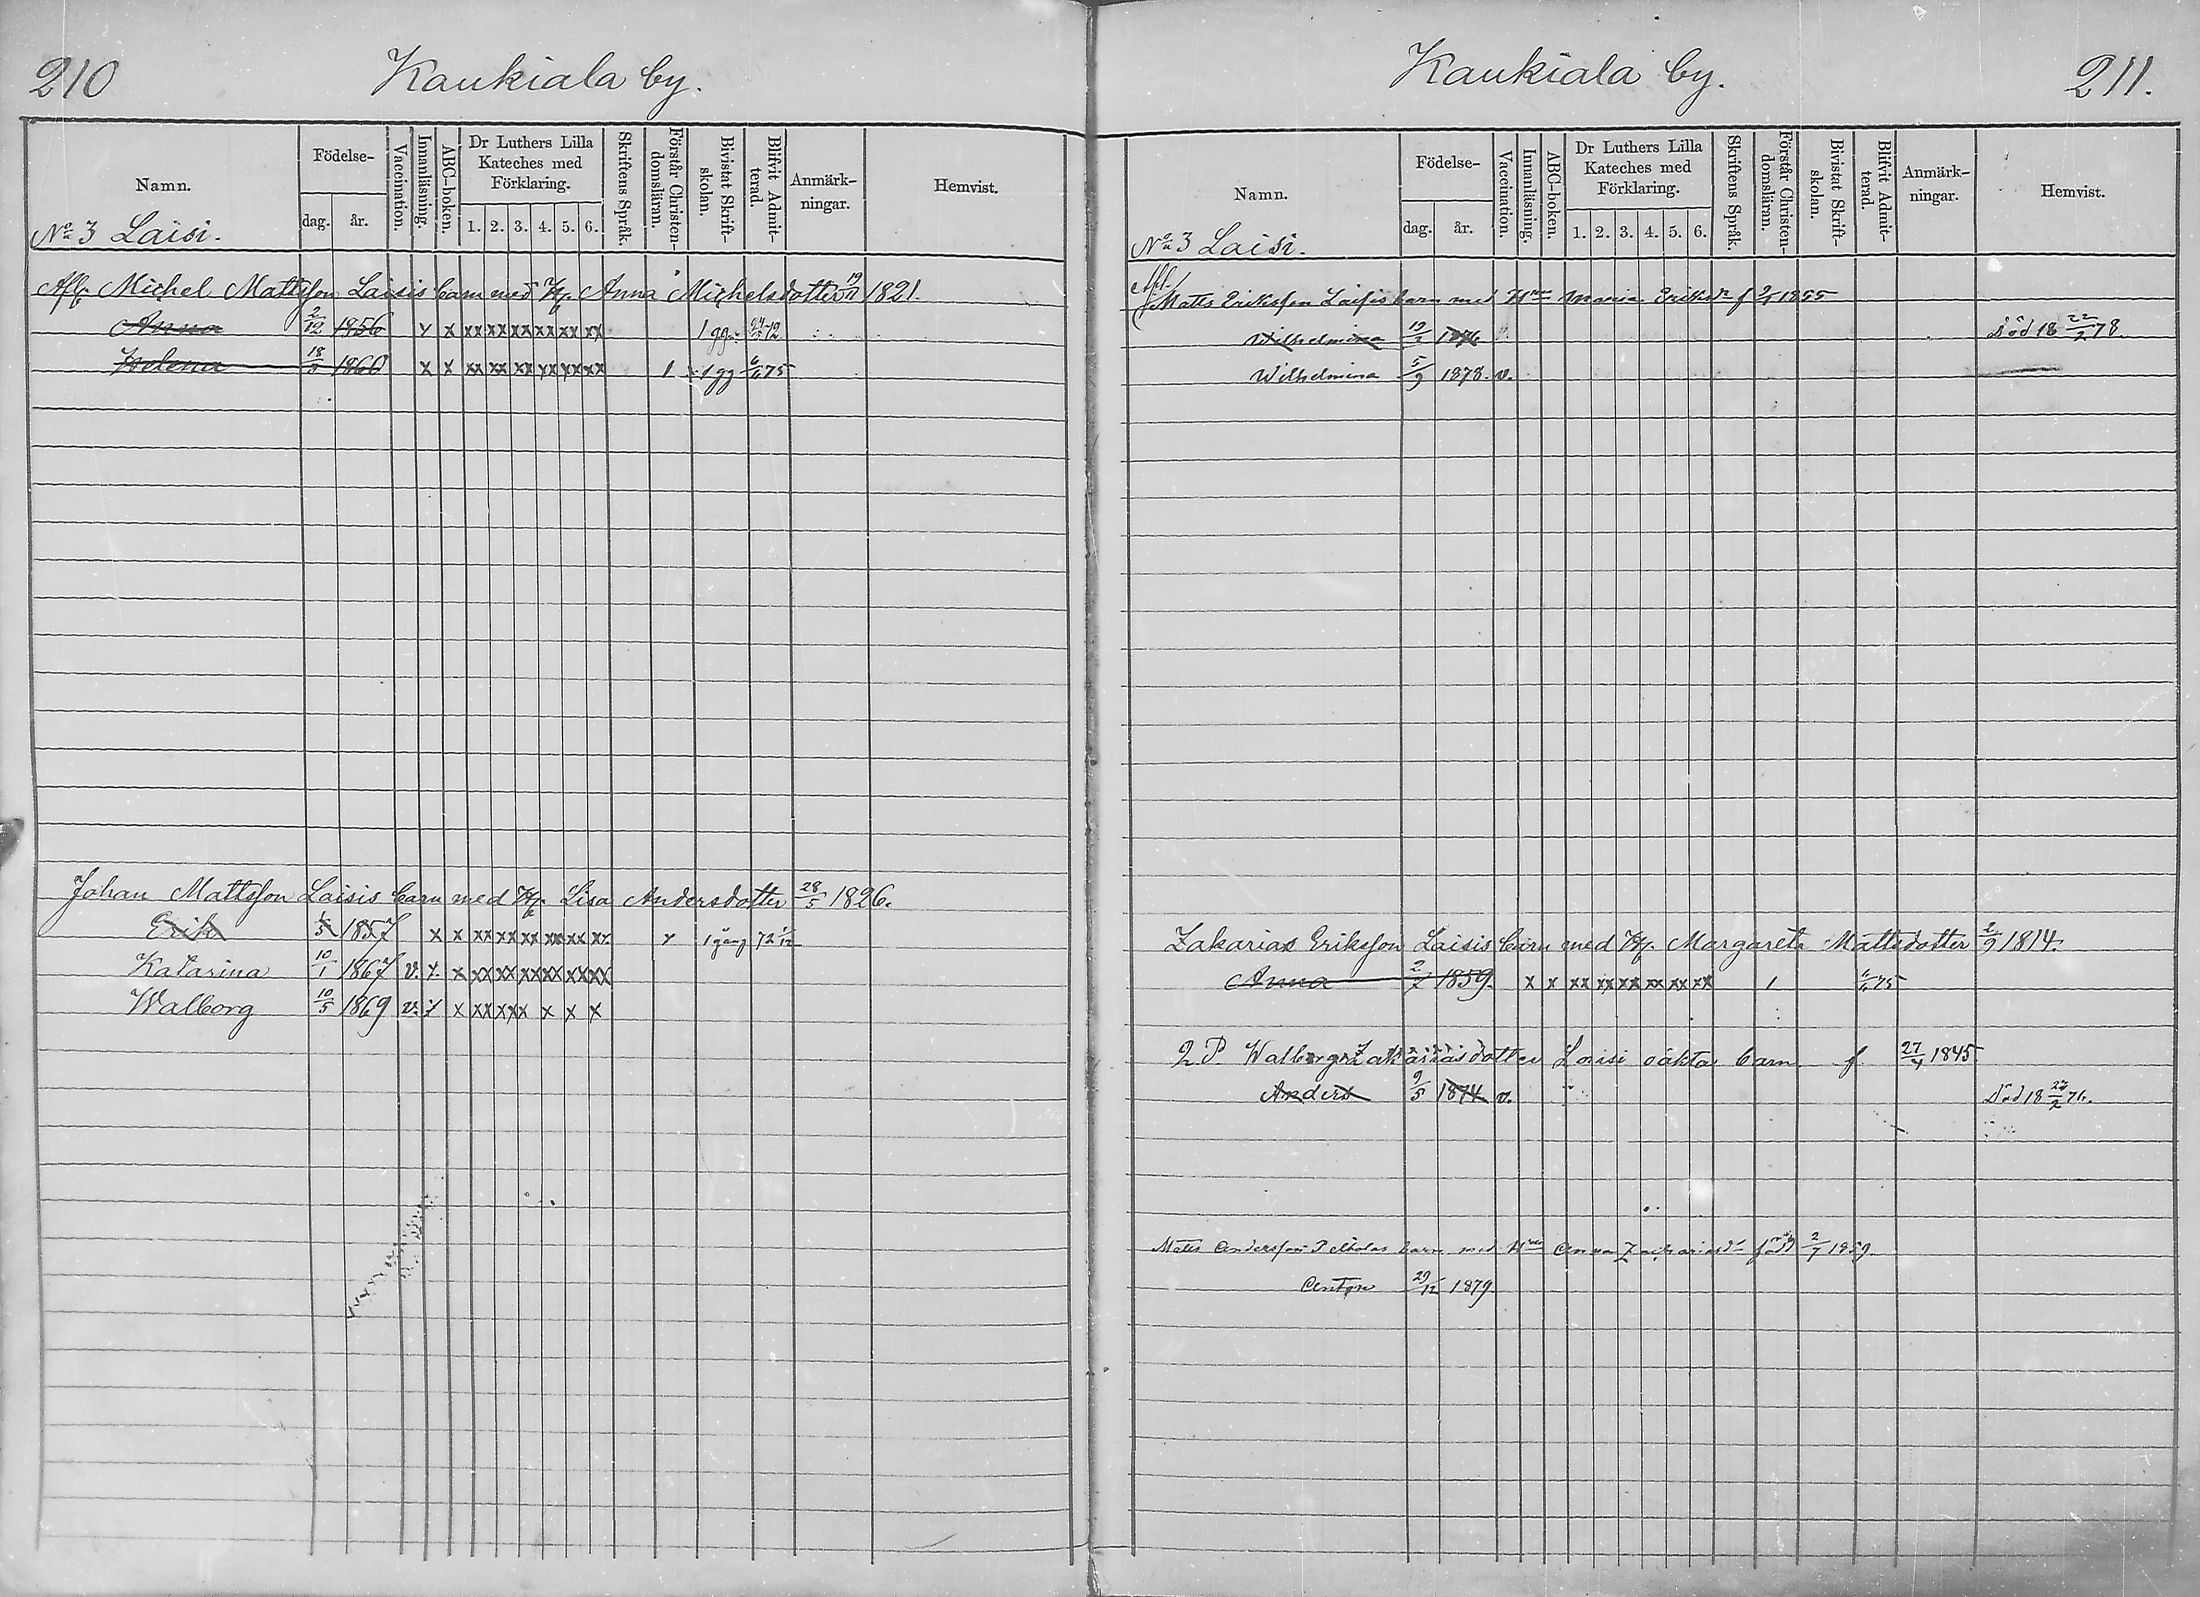 210
Kaukiala by.
Namn.
Födelse-
dag.
år.
Vaccination.
Innanläsning.
ABC-boken.
Dr Luthers Lilla Kateches med Förklaring.
1. 2. 3. 4. 5. 6.
Skriftens Språk.
Förstår Christen-domsläran.
Bivistat Skrift-skolan.
Blifvit Admit-terad.
Anmärk-ningar.
Hemvist.
No 3 Laisi.
Michel Mattsson Laisis barn med H. Anna Michelsdotter 19/11 1821.
Anna 2/12 1856 x x xx xx xx xx xx xx 1 gg 72
Helena 18/5 1860 x x xx xx xx xx xx xx 1 1 gg 75
Johan Mattsson Laisis barn med H. Lisa Andersdotter 28/5 1826.
Erik 1857 x x xx xx xx xx xx xx x 1 gång 72 1/12
Katarina 10/1 1867 v. x x xx xx xx xx xx xx
Walborg 10/5 1869 v. x x xx xx x x x x
Kaukiala by.
211.
Namn.
Födelse-
dag.
år.
Vaccination.
Innanläsning.
ABC-boken.
Dr Luthers Lilla Kateches med Förklaring.
1. 2. 3. 4. 5. 6.
Skriftens Språk.
Förstår Christen-domsläran.
Bivistat Skrift-skolan.
Blifvit Admit-terad.
Anmärk-ningar.
Hemvist.
No 3 Laisi.
Matts Eriksson Laisis barn med Maria Eriksdr f 1855
Wilhelmina 1876 Död 18 22/2 78.
Wilhelmina 5/9 1878. v.
Zakarias Eriksson Laisis barn med H. Margareta Mattsdotter 2/9 1814.
Anna 2/7 1859. x x xx xx xx xx xx xx 1 75
Q.P. Walborg Zakariasdotter Laisi oäkta barn f 27/4 1845
Anders 9/5 1874 v. Död 18 /2 76.
Matts Andersson barn med Anna Zachariasdr född 2/7 1859
Anton 29/12 1879